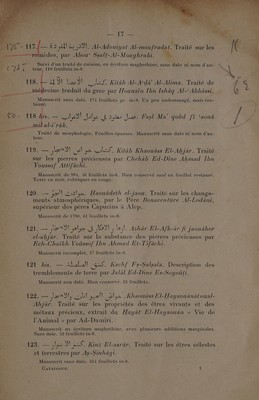 — 17 —
117. الادوية المفردة. Al-Adouiyat Al-moufradat. Traité sur les
remèdes, par Abou' Saalt-Al-Moughrabi.
Suivi d'un traité de cuisine, en écriture maghrébine, sans date ni nom d'au-
teur, 110 feuillets in-8.
118. كتاب Kitâb Al-A'dâ' Al-Alima. Traité de
médecine traduit du grec par Honaïn Ibn Ishâq Al-'Abbâssi.
Manuscrit sans date. 171 feuillets pt. in-8. Un peu endommagé, mais res-
tauré.
118 bis.
Traité de morphologie. Feuillets épars. Manuscrit sans date ni nom d'au-
teur.
119. كتاب خواص الاحجار. Kitâb Khaouâss El-Ahjâr. Traité
sur les pierres précieuses par Chehâb Ed-Dîne Ahmad Ibn
Youssof Attifâchi.
Manuscrit de 984, 41 feuillets in-8. Bien conservé sauf un feuillet restauré.
Texte en noir, rubriques en rouge.
120. حوادث الجو. Haouâdeth el-jaou. Traité sur les change-
ments atmosphériques, par le Père Bonaventure Al-Lodâni,
supérieur des pères Capucins à Alep.
Manuscrit de 1706, 61 feuillets in-8.
121. ازهار الافكار في جواهر الاحجار. Azhâr El-Afk-âr fî jaouâher
el-ahjâr. Traité sur la substance des pierres précieuses par
Ech-Chaïkh Youssof Ibn Ahmed Et-Tifâchi.
Manuscrit incomplet, 37 feuillets in-8.
121 bis. كشف الصلصلة. Kechf Es-Salsala. Description des
tremblements de terre par Jalâl Ed-Dîne Es-Soyoûti.
Manuscrit sans date. Bien conservé. 23 feuillets.
122. خواص الحيوانات والاحجار. Khaouâss El-Hayaouânât oual-
Ahjâr. Traité sur les propriétés des êtres vivants et des
métaux précieux, extrait du Hayât El-Hayaouân « Vie de
l'Animal » par Ad-Damiri.
Manuscrit en écriture maghrébine, avec plusieurs additions marginales.
Sans date. 52 feuillets in-8.
123. كنز الاسرار. Kinz El-asrâr. Traité sur les êtres célestes
et terrestres par As-Sinhâji.
Manuscrit sans date. 164 feuillets in-8.
Catalogue